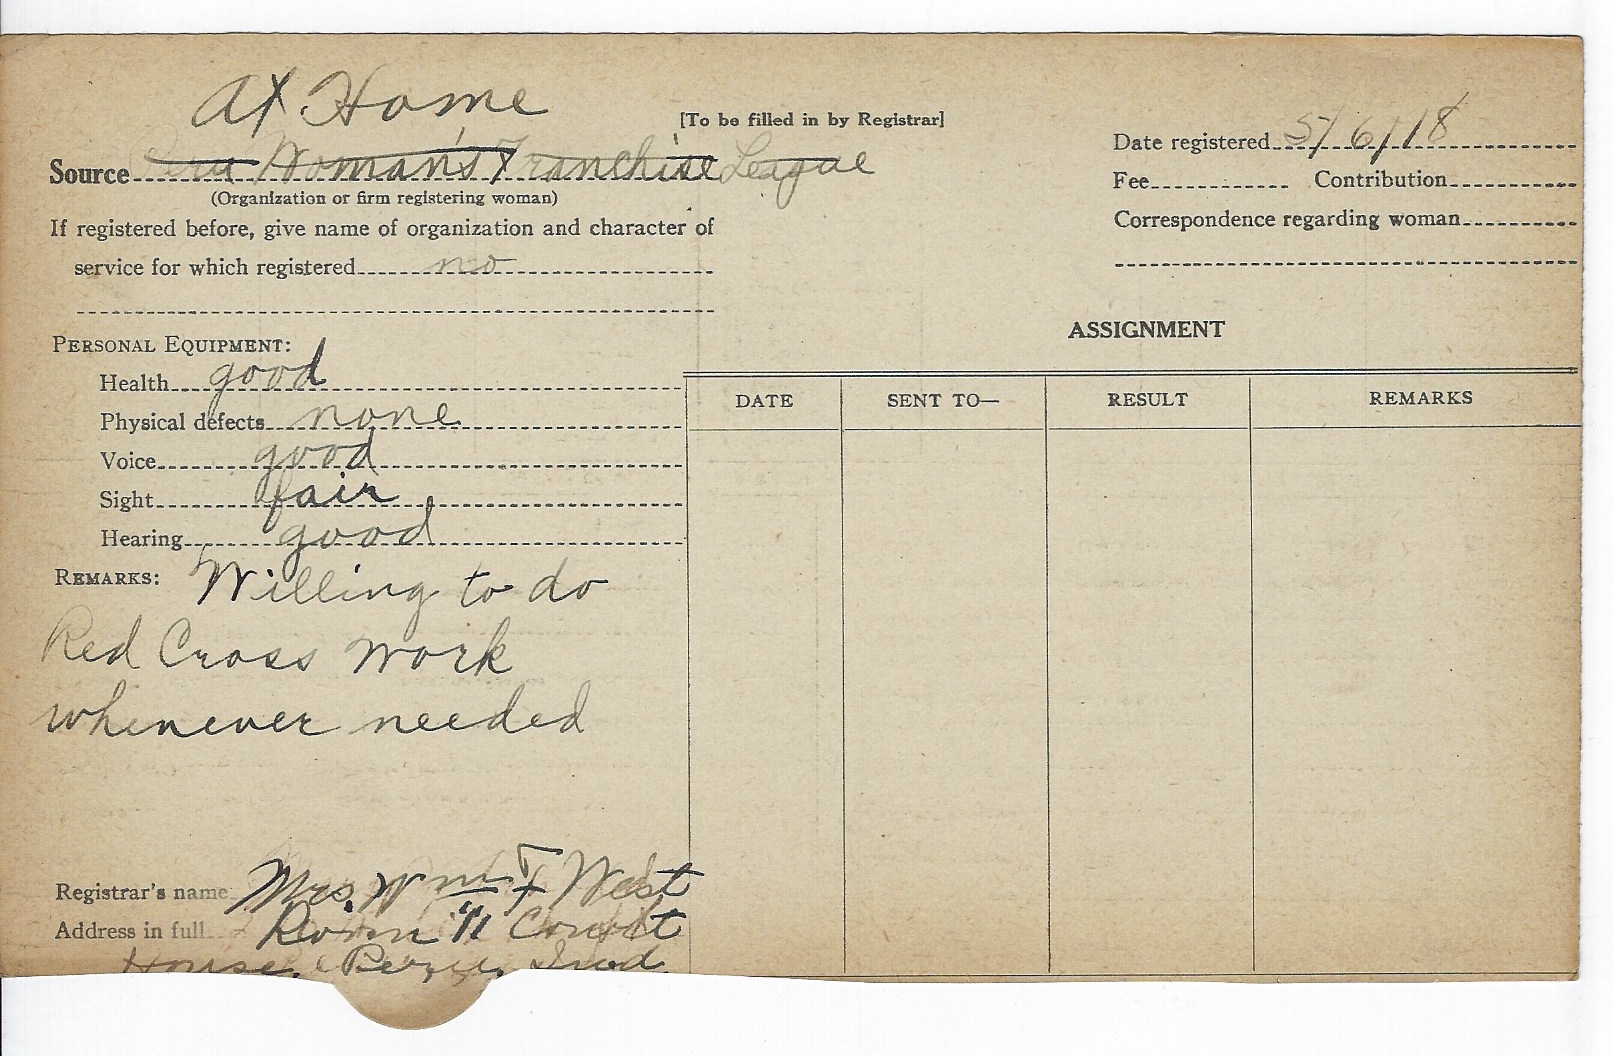 At Home
[To be filled in by Registrar]
Date registered 5/6/18
Source Peru Woman's Franchise League
(Organization or firm registering woman)
Fee Contribution
If registered before, give name of organization and character of
Correspondence regarding woman
service for which registered no
ASSIGNMENT
PERSONAL EQUIPMENT:
Health good
Physical defects none
Voice good
Sight fair
Hearing good
DATE SENT TO— RESULT REMARKS
REMARKS: Willing to do
Red Cross work
whenever needed
Registrar's name Mrs. Wm F West
Address in full Room 11 Court
House, Peru, Ind